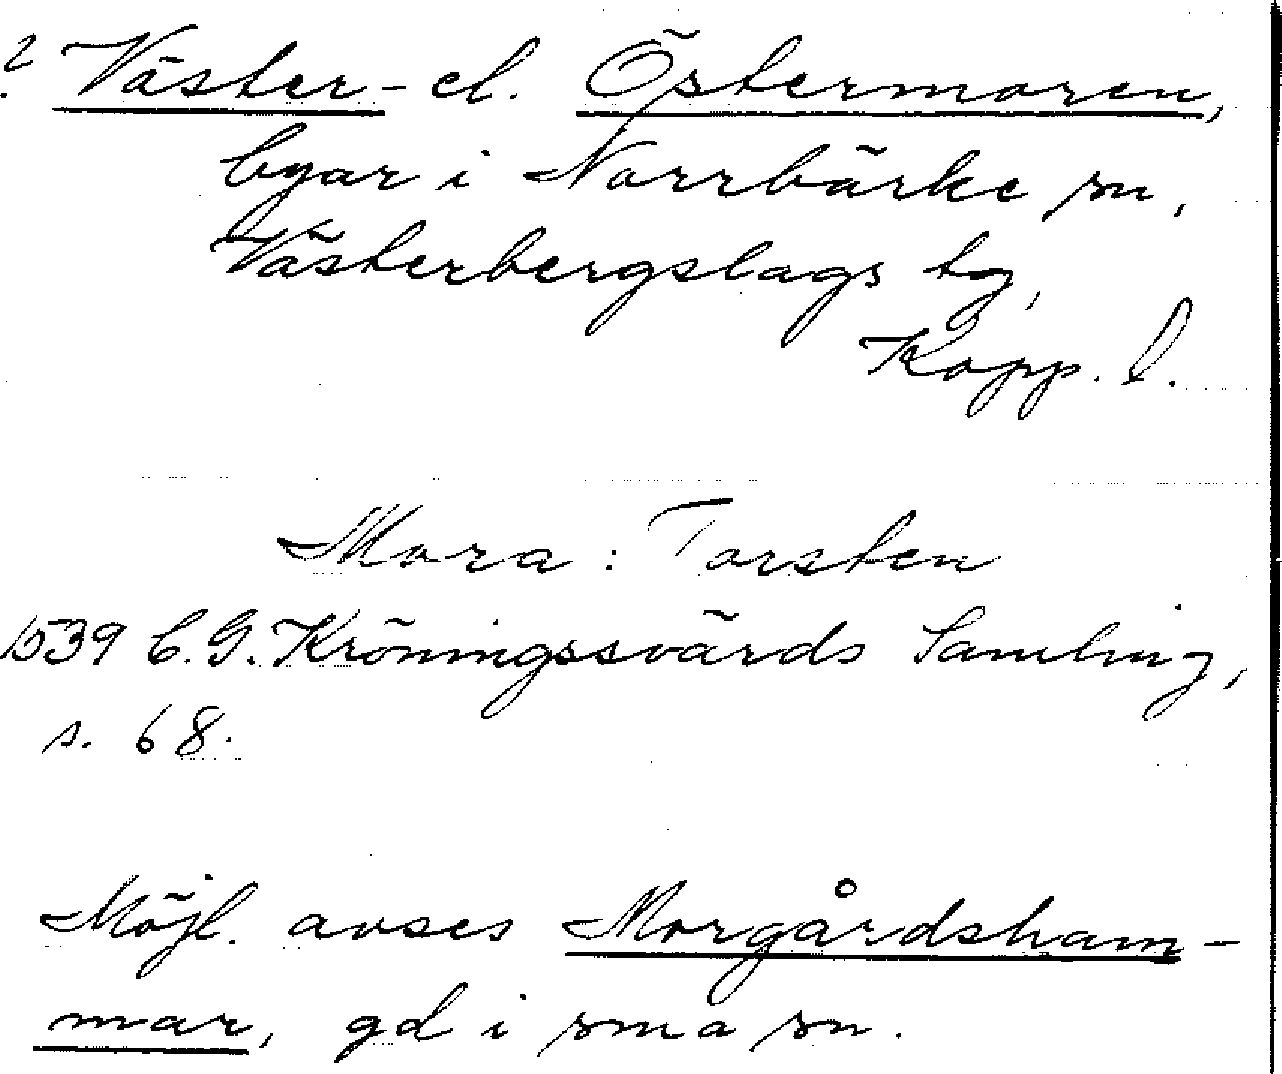 ? Väster- el. Östermoren,
byar i Norrbärke sn,
Västerbergslags tg,
Kopp. l.
Mora : Torsten
1539 C.G. Kröningssvärds Samling,
s. 68.
Möjl. avses Morgårdsham-
mar, gd i sma sn.